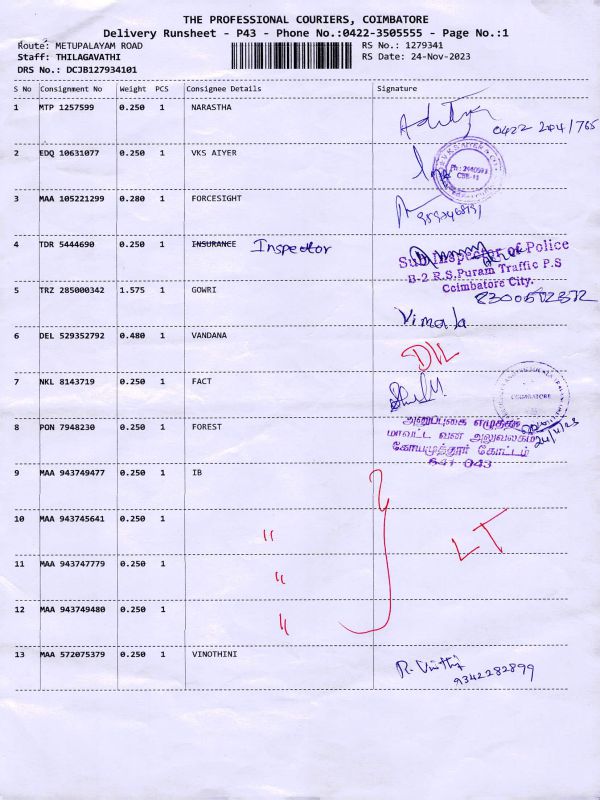 THE PROFESSIONAL COURIERS, COIMBATORE
Delivery Runsheet - P43 - Phone No.:0422-3505555 - Page No.:1
Route: METUPALAYAM ROAD RS No.: 1279341
Staff: THILAGAVATHI RS Date: 24-Nov-2023
DRS No.: DCJB127934101
S No Consignment No Weight PCS Consignee Details Signature
1 MTP 1257599 0.250 1 NARASTHA Aditya
0422 204/765
2 EDQ 10631077 0.250 1 VKS AIYER
3 MAA 105221299 0.280 1 FORCESIGHT
4 TDR 5444690 0.250 1 INSURANCE Inspector
Sub Inspector of Police
B-2 R.S.Puram Traffic P.S
Coimbatore City.
5 TRZ 285000342 1.575 1 GOWRI
Vimala
6 DEL 529352792 0.480 1 VANDANA
DIL
7 NKL 8143719 0.250 1 FACT
COIMBATORE
8 PON 7948230 0.250 1 FOREST
அனுப்புகை எழுத்தர்
மாவட்ட வன அலுவலகம்
கோயமுத்தூர் கோட்டம்
641 043
24/11/23
9 MAA 943749477 0.250 1 IB
10 MAA 943745641 0.250 1 "
LT
11 MAA 943747779 0.250 1 "
12 MAA 943749480 0.250 1 "
13 MAA 572075379 0.250 1 VINOTHINI R. Vinothi
9342282899